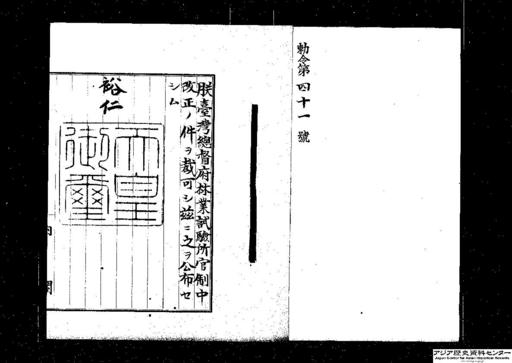 勅令第四十一號
朕臺灣總督府林業試驗所官制中
改正ノ件ヲ裁可シ茲ニ之ヲ公布セ
シム
裕仁
天皇
御璽
内閣
アジア歴史資料センター
Japan Center for Asian Historical Records